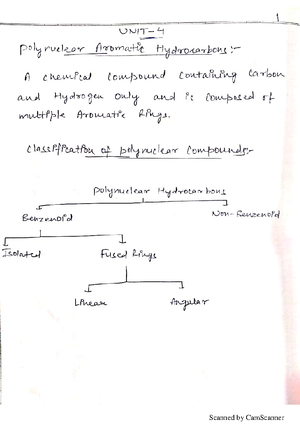 1
UNIT-4
Polynuclear Aromatic Hydrocarbons:-
A chemical compound containing carbon
and Hydrogen only and is composed of
multiple Aromatic Rings.
Classification of polynuclear compounds:-
Polynuclear Hydrocarbons
Benzenoid Non-Benzenoid
Isolated Fused Rings
Linear Angular
Scanned by CamScanner